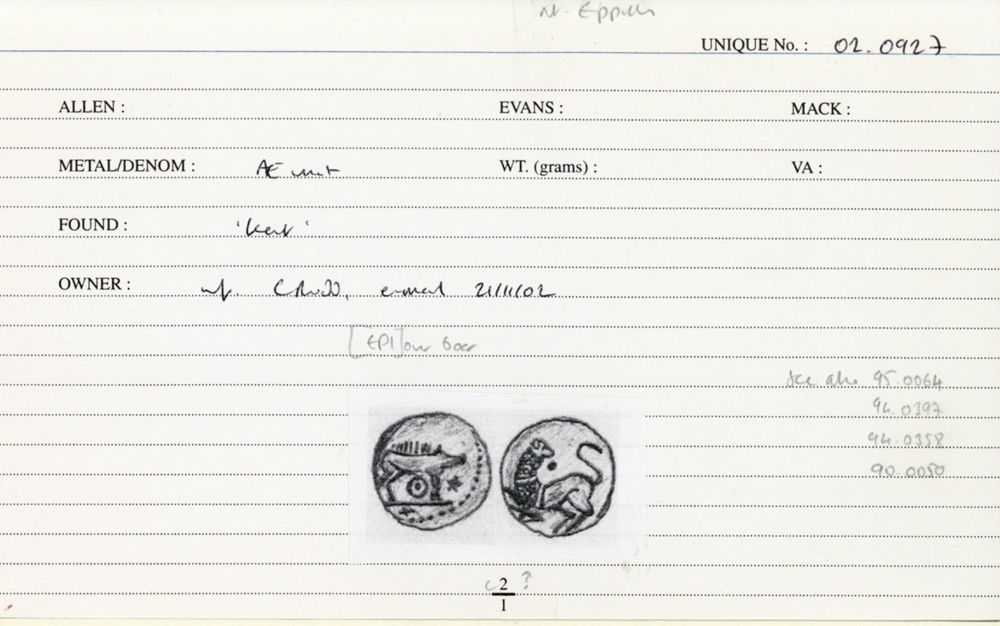 Eppillus
UNIQUE No. : 02.0927
ALLEN : EVANS : MACK :
METAL/DENOM : Æ unit WT. (grams) : VA :
FOUND : 'Kent'
OWNER : CRUDD, e-mail 21/11/02
[EPI] over boar
See also 95.0064
94.0397
94.0358
90.0050
2 ?
1